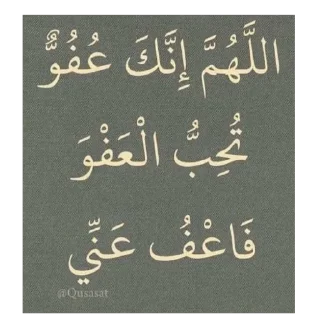 اللَّهُمَّ إِنَّكَ عُفُوٌّ
تُحِبُّ الْعَفْوَ
فَاعْفُ عَنِّي
@Qusasat